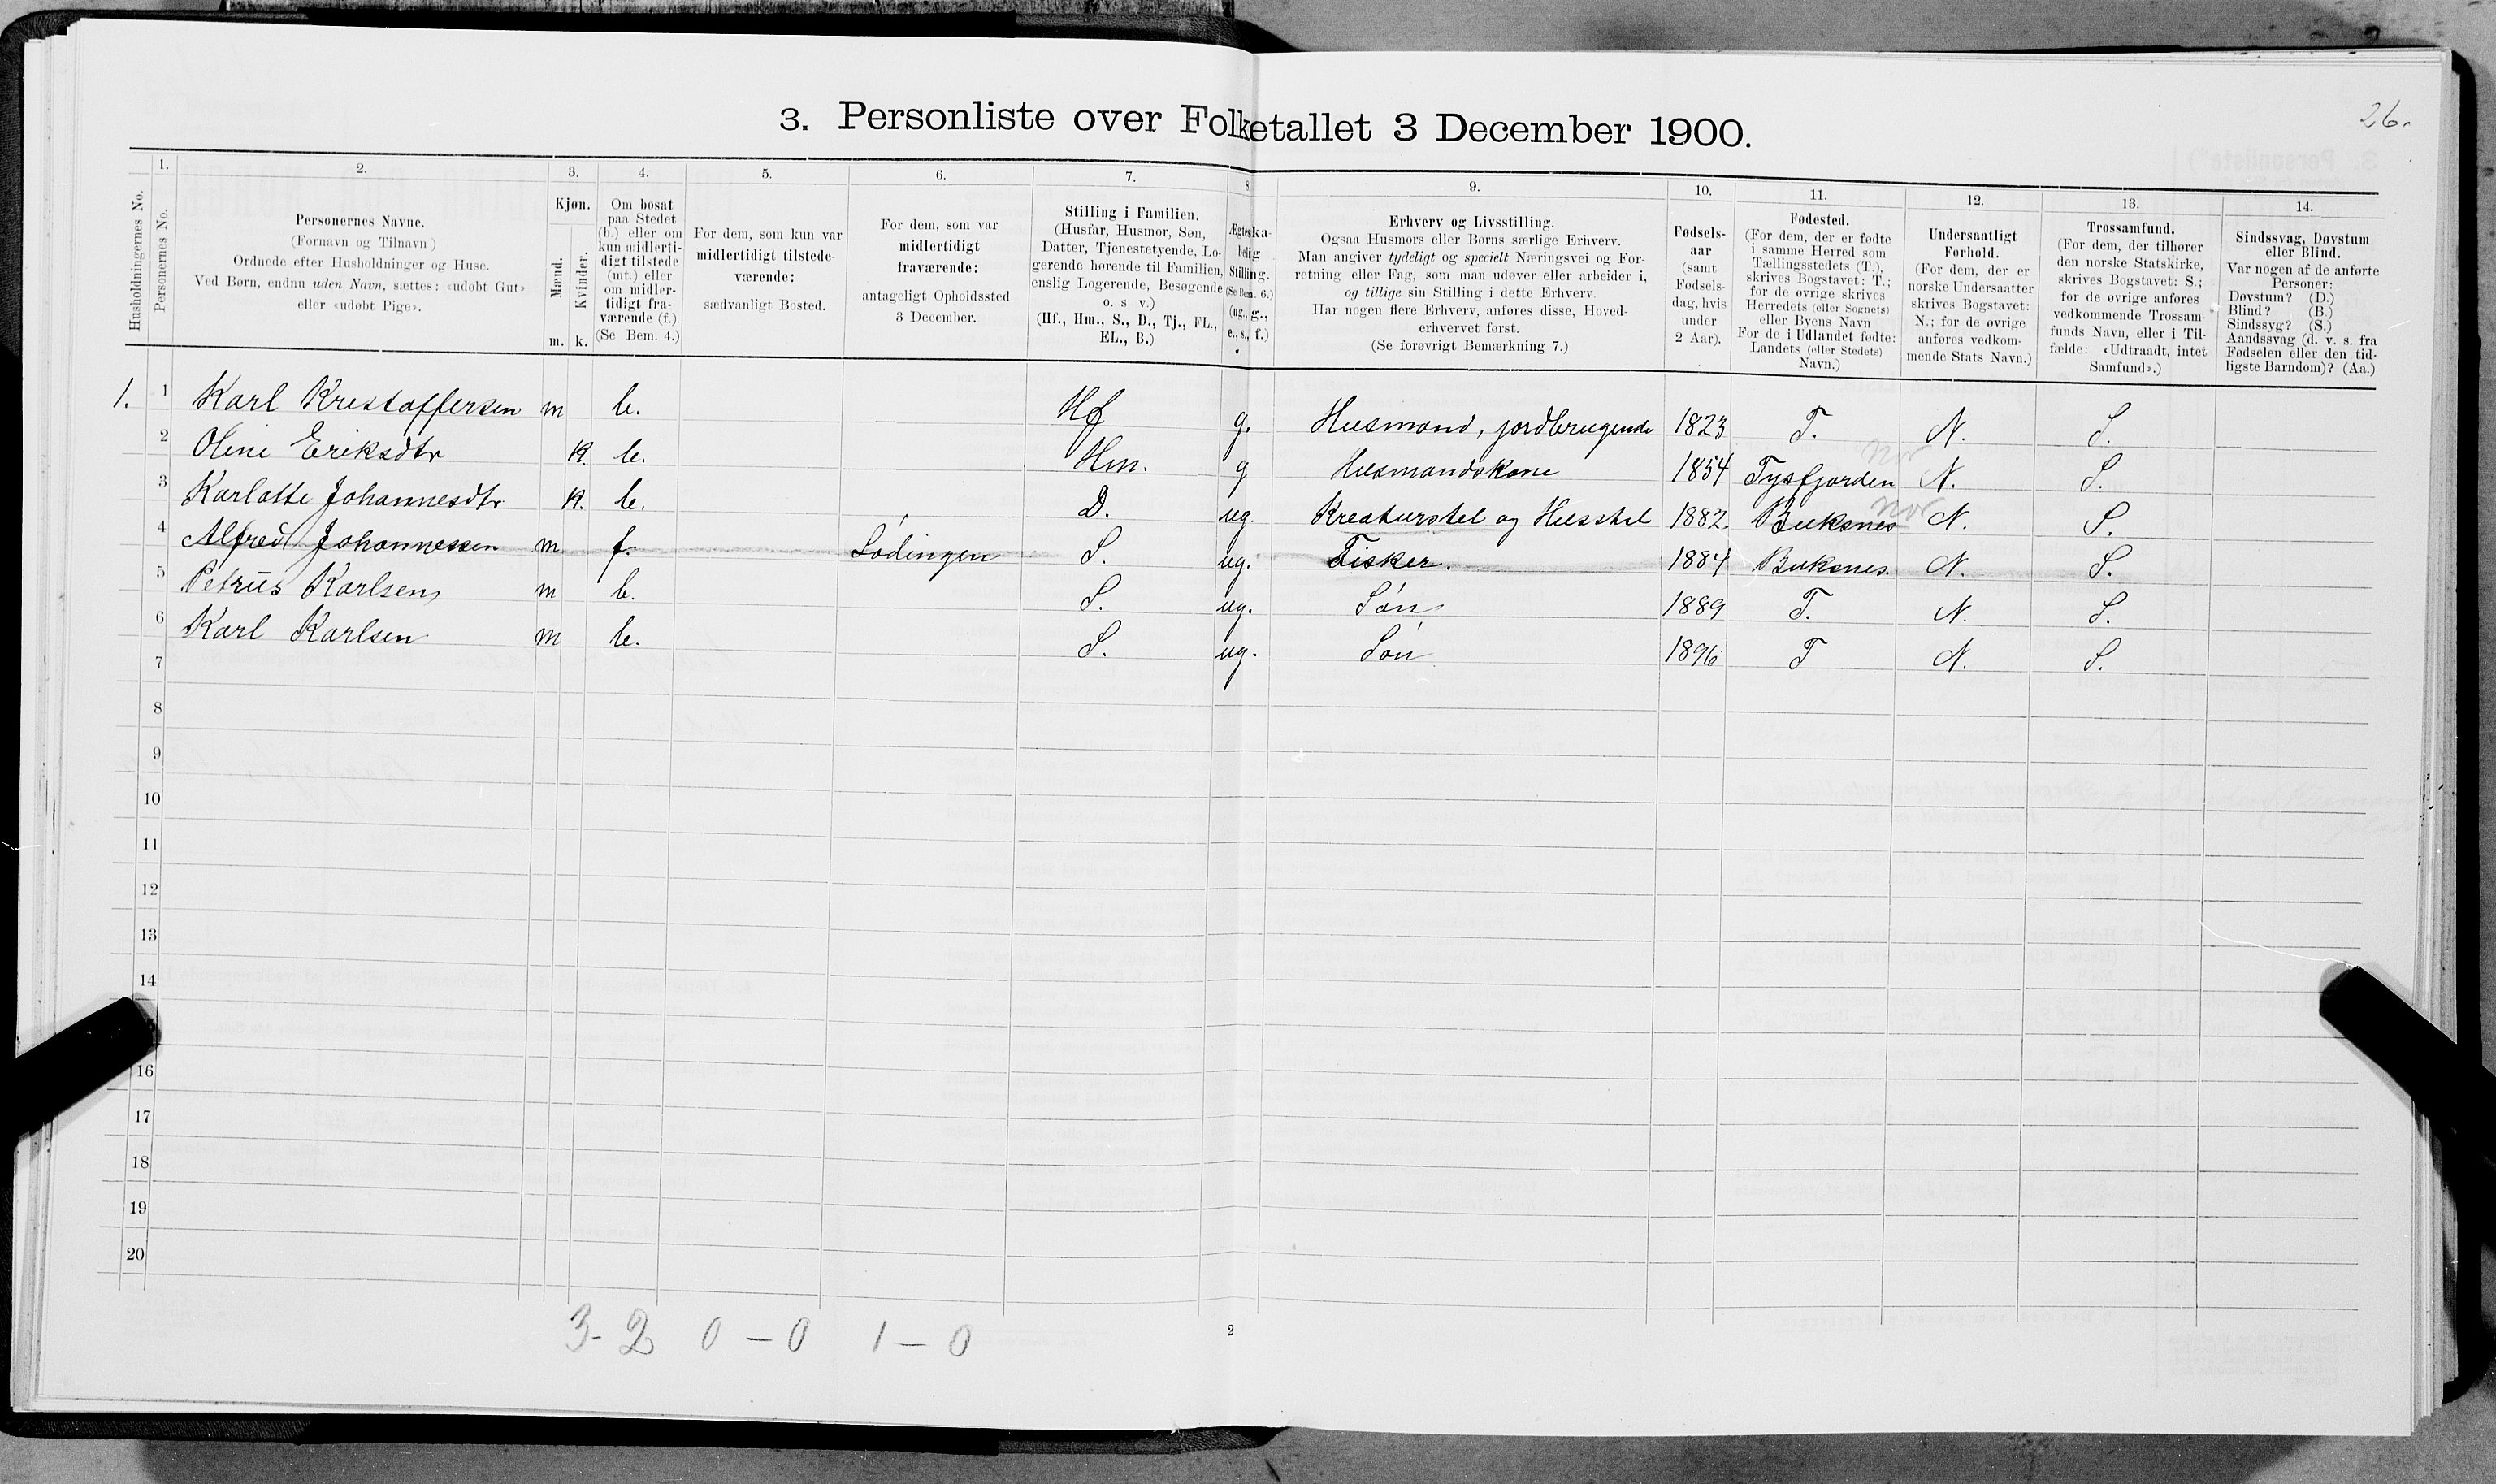 3. Personliste over Folketallet 3 December 1900.
26.
Husholdningernes No.
1.
Personernes No.
2.
Personernes Navne.
(Fornavn og Tilnavn)
Ordnede efter Husholdninger og Huse.
Ved Børn, endnu uden Navn, sættes: «udøbt Gut»
eller «udøbt Pige».
3.
Kjøn.
Mænd.
Kvinder.
m. k.
4.
Om bosat
paa Stedet
(b.) eller om
kun midlerti-
digt tilstede
(mt.) eller
om midler-
tidigt fra-
værende (f.).
(Se Bem. 4.)
5.
For dem, som kun var
midlertidigt tilstede-
værende:
sædvanligt Bosted.
6.
For dem, som var
midlertidigt
fraværende:
antageligt Opholdssted
3 December.
7.
Stilling i Familien.
(Husfar, Husmor, Søn,
Datter, Tjenestetyende, Lo-
gerende hørende til Familien,
enslig Logerende, Besøgende
o. s v.)
(Hf., Hm., S., D., Tj., FL.,
EL., B.)
8.
Ægteska-
belig
Stilling.
(Se Bem. 6.)
(ug., g.,
e., s., f.)
9.
Erhverv og Livsstilling.
Ogsaa Husmors eller Børns særlige Erhverv.
Man angiver tydeligt og specielt Næringsvei og For-
retning eller Fag, som man udøver eller arbeider i,
og tillige sin Stilling i dette Erhverv.
Har nogen flere Erhverv, anføres disse, Hoved-
erhvervet først.
(Se forøvrigt Bemærkning 7.)
10.
Fødsels-
aar
(samt
Fødsels-
dag, hvis
under
2 Aar).
11.
Fødested.
(For dem, der er fødte
i samme Herred som
Tællingsstedets (T.),
skrives Bogstavet: T.;
for de øvrige skrives
Herredets (eller Sognets)
eller Byens Navn
For de i Udlandet fødte:
Landets (eller Stedets)
Navn.)
12.
Undersaatligt
Forhold.
(For dem, der er
norske Undersaatter
skrives Bogstavet:
N.; for de øvrige
anføres vedkom-
mende Stats Navn.)
13.
Trossamfund.
(For dem, der tilhører
den norske Statskirke,
skrives Bogstavet: S.;
for de øvrige anføres
vedkommende Trossam-
funds Navn, eller i Til-
fælde: «Udtraadt, intet
Samfund».)
14.
Sindssvag, Døvstum
eller Blind.
Var nogen af de anførte
Personer:
Døvstum? (D.)
Blind? (B.)
Sindssyg? (S.)
Aandssvag (d. v. s. fra
Fødselen eller den tid-
ligste Barndom)? (Aa.)
1. 1 Karl Kristoffersen m b. Hf g. Husmand, jordbrugende 1823 T. N. S.
2 Oline Eriksdtr k. b. Hm. g Husmandskone 1854 Tysfjorden Nor N. S.
3 Karlotte Johannesdtr k. b. D. ug. Kreaturstel og Husstel 1882. Buksnes Nor N. S.
4 Alfred Johannessen m f. Lødingen S. ug. Fisker. 1884 Buksnes. N. S.
5 Petrus Karlsen m b. S. ug. Søn 1889 T. N. S.
6 Karl Karlsen m b. S. ug. Søn 1896 T N. S.
7
8
9
10
11
12
13
14
16
17
18
19
20
3-2 0-0 1-0
2